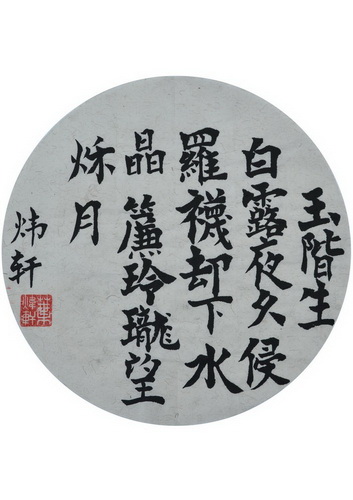 玉階生
白露夜久侵
羅襪却下水
晶簾玲瓏望
秌月
炜轩
葉煒軒